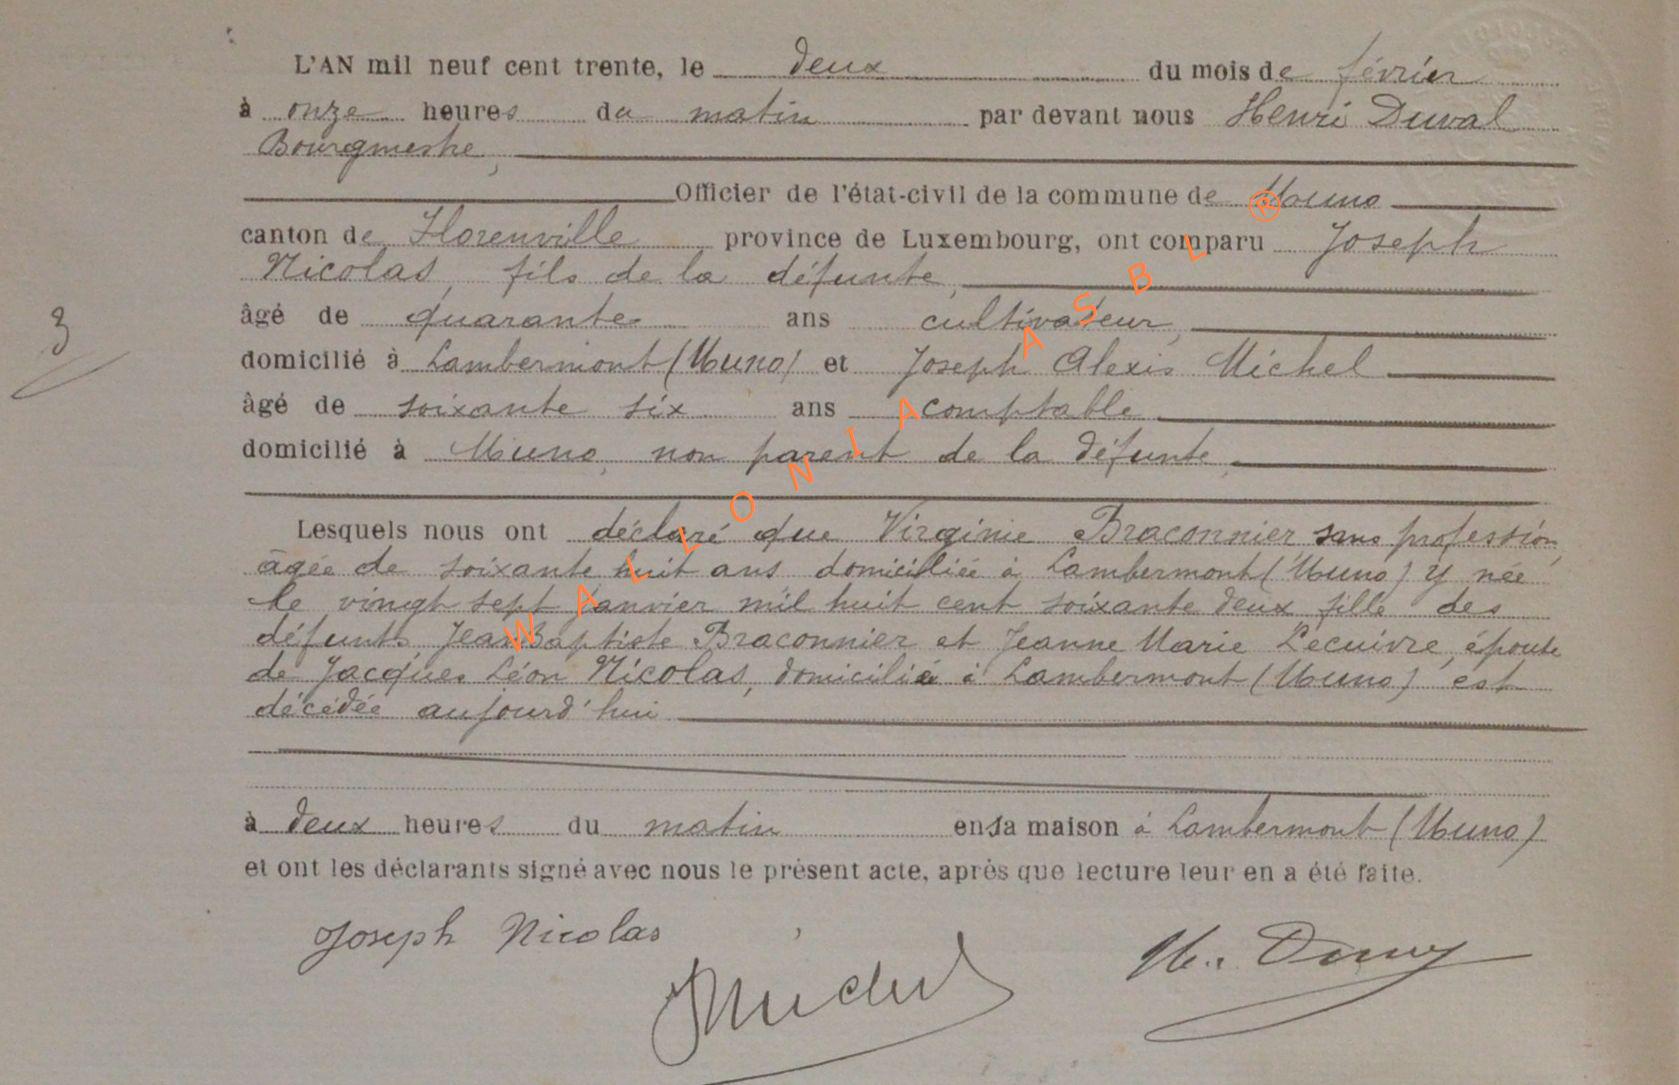 L'AN mil neuf cent trente, le deux du mois de février
à onze heures du matin par devant nous Henri Duval
Bourgmestre,
Officier de l'état-civil de la commune de Muno
canton de Florenville province de Luxembourg, ont comparu Joseph
Nicolas, fils de la défunte,
âgé de quarante ans cultivateur,
domicilié à Lambermont (Muno) et Joseph Alexis Michel
âgé de soixante six ans comptable
domicilié à Muno, non parent de la défunte,
3
Lesquels nous ont déclaré que Virginie Braconnier sans profession,
âgée de soixante huit ans domiciliée à Lambermont (Muno) y née
le vingt sept janvier mil huit cent soixante deux fille des
défunts Jean Baptiste Braconnier et Jeanne Marie Lecuivre, épouse
de Jacques Léon Nicolas, domiciliée à Lambermont (Muno) est
décédée aujourd'hui
à deux heures du matin en sa maison à Lambermont (Muno)
et ont les déclarants signé avec nous le présent acte, après que lecture leur en a été faite.
Joseph Nicolas
JMichel
WALLONIA ASBL ®